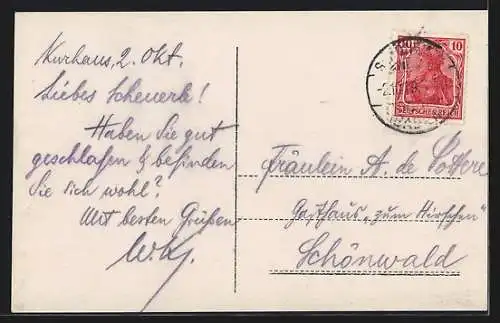 Kurhaus, 2. Okt.
Liebes Scheuerle!
Haben Sie gut
geschlafen & befinden
Sie sich wohl?
Mit besten Grüßen
10
DEUTSCHES REICH
Fräulein A. de
Gasthaus "zum Hirschen"
Schönwald